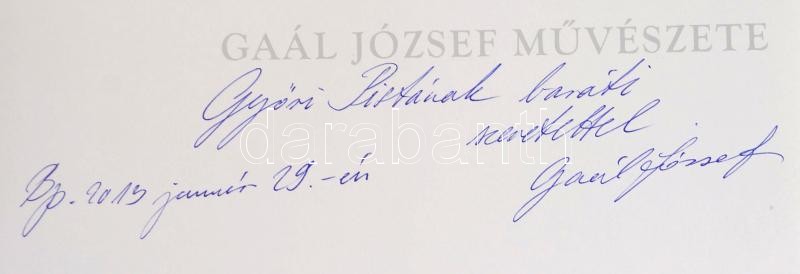 GAÁL JÓZSEF MŰVÉSZETE
Győri Pistának baráti
szeretettel
Gaál József
Bp. 2013 január 29.-én
darabanth